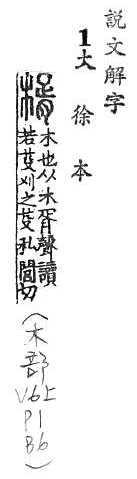 說文解字
1大徐本
楈
木也从木胥聲讀
若芟刈之芟私閭切
(木部
V6上
P1
B6)